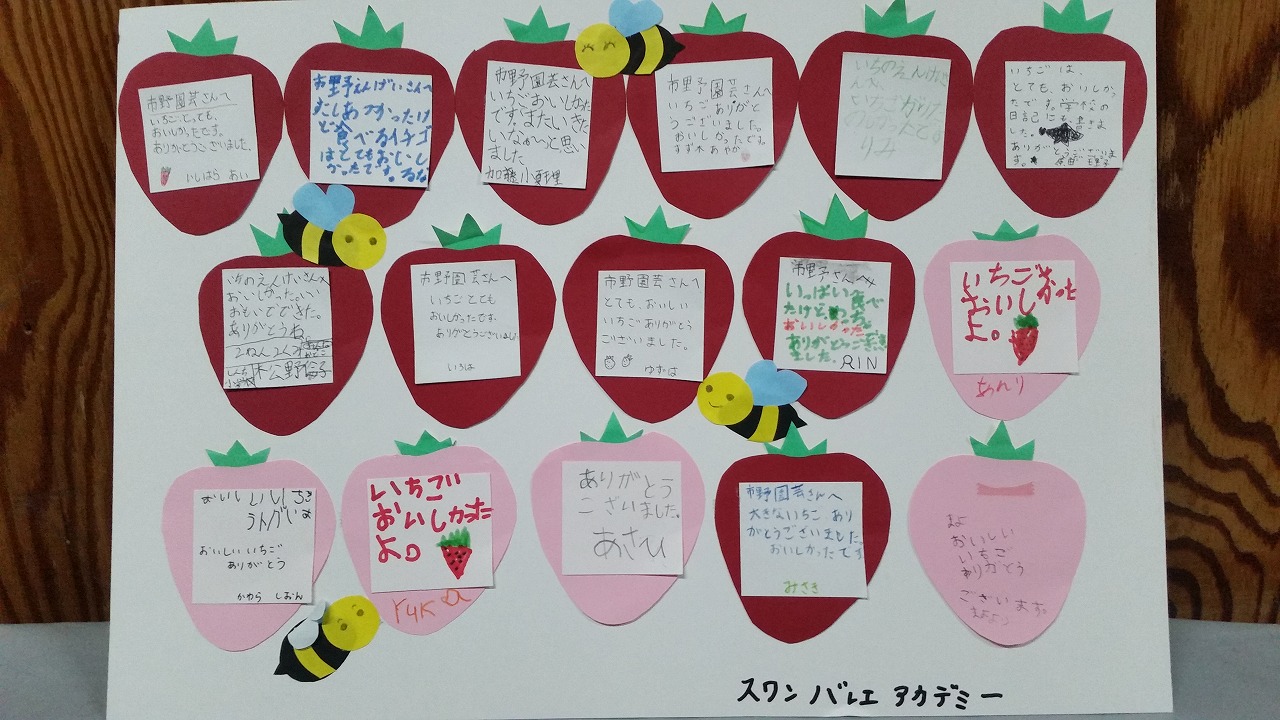 市野園芸さんへ
いちごとっても、
おいしかったです。
ありがとうございました。
いしはら あい
市野えんげいさんへ
むしあつかったけ
ど食べるイチゴ
はとてもおいし
かったです。るな
市野園芸さんへ
いちごおいしかった
です。またいきた
いなぁ〜と思い
ました
加藤小野里
市野園芸さんへ
いちごありがと
うございました。
おいしかったです。
すず木 あやか
いちのえんげいさ
りみ
いちごは、
とても、おいしかっ
たです。学校の
日記にも 書きま
した。
ありがとうございま
す。
おいしかった。いい
おもいでできた。
ありがとうね。
2ねん2くみ
市野園芸さんへ
いちごとても
おいしかったです。
ありがとうございました
いろは
市野園芸さんへ
とても、おいしい
いちごありがとう
ございました。
ゆずは
市野さんへ
いっぱい食べ
たけど、
おいしかった
ありがとうござい
ました。
RIN
いちご
おいしかった
よ。
あんり
おいしいいちご
ありがとう
かわら しおん
いちご
おいしかった
よ。
YUKA
ありがとう
ございました。
あさひ
市野園芸さんへ
大きないちご あり
がとうございました。
おいしかったです
みさき
まよ
おいしい
いちご
ありがとう
ございます。
スワン バレエ アカデミー